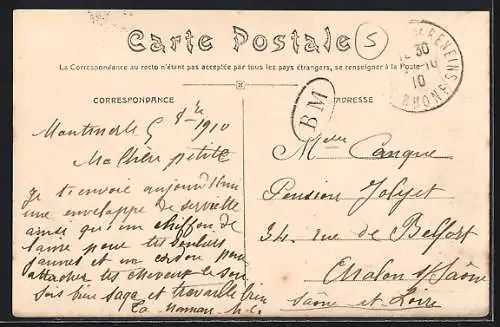 Carte Postale
S
La Correspondance au recto n'étant pas acceptée par tous les pays étrangers, se renseigner à la Poste
CORRESPONDANCE
ADRESSE
BM
BENEINS
30
10
10
RHONE
8 1910
Ma Chère petite
Je t'envoie aujourd'hui
une enveloppe de serviette
ainsi qu'un chiffon de
laine pour tes souliers
jaunes et un cordon pour
attacher tes cheveux le soir
Sois bien sage et travaille bien
Ta Maman
Melle Canque
Pension Jolyet
34 rue de Belfort
Chalon s/ Saône
Saône et Loire